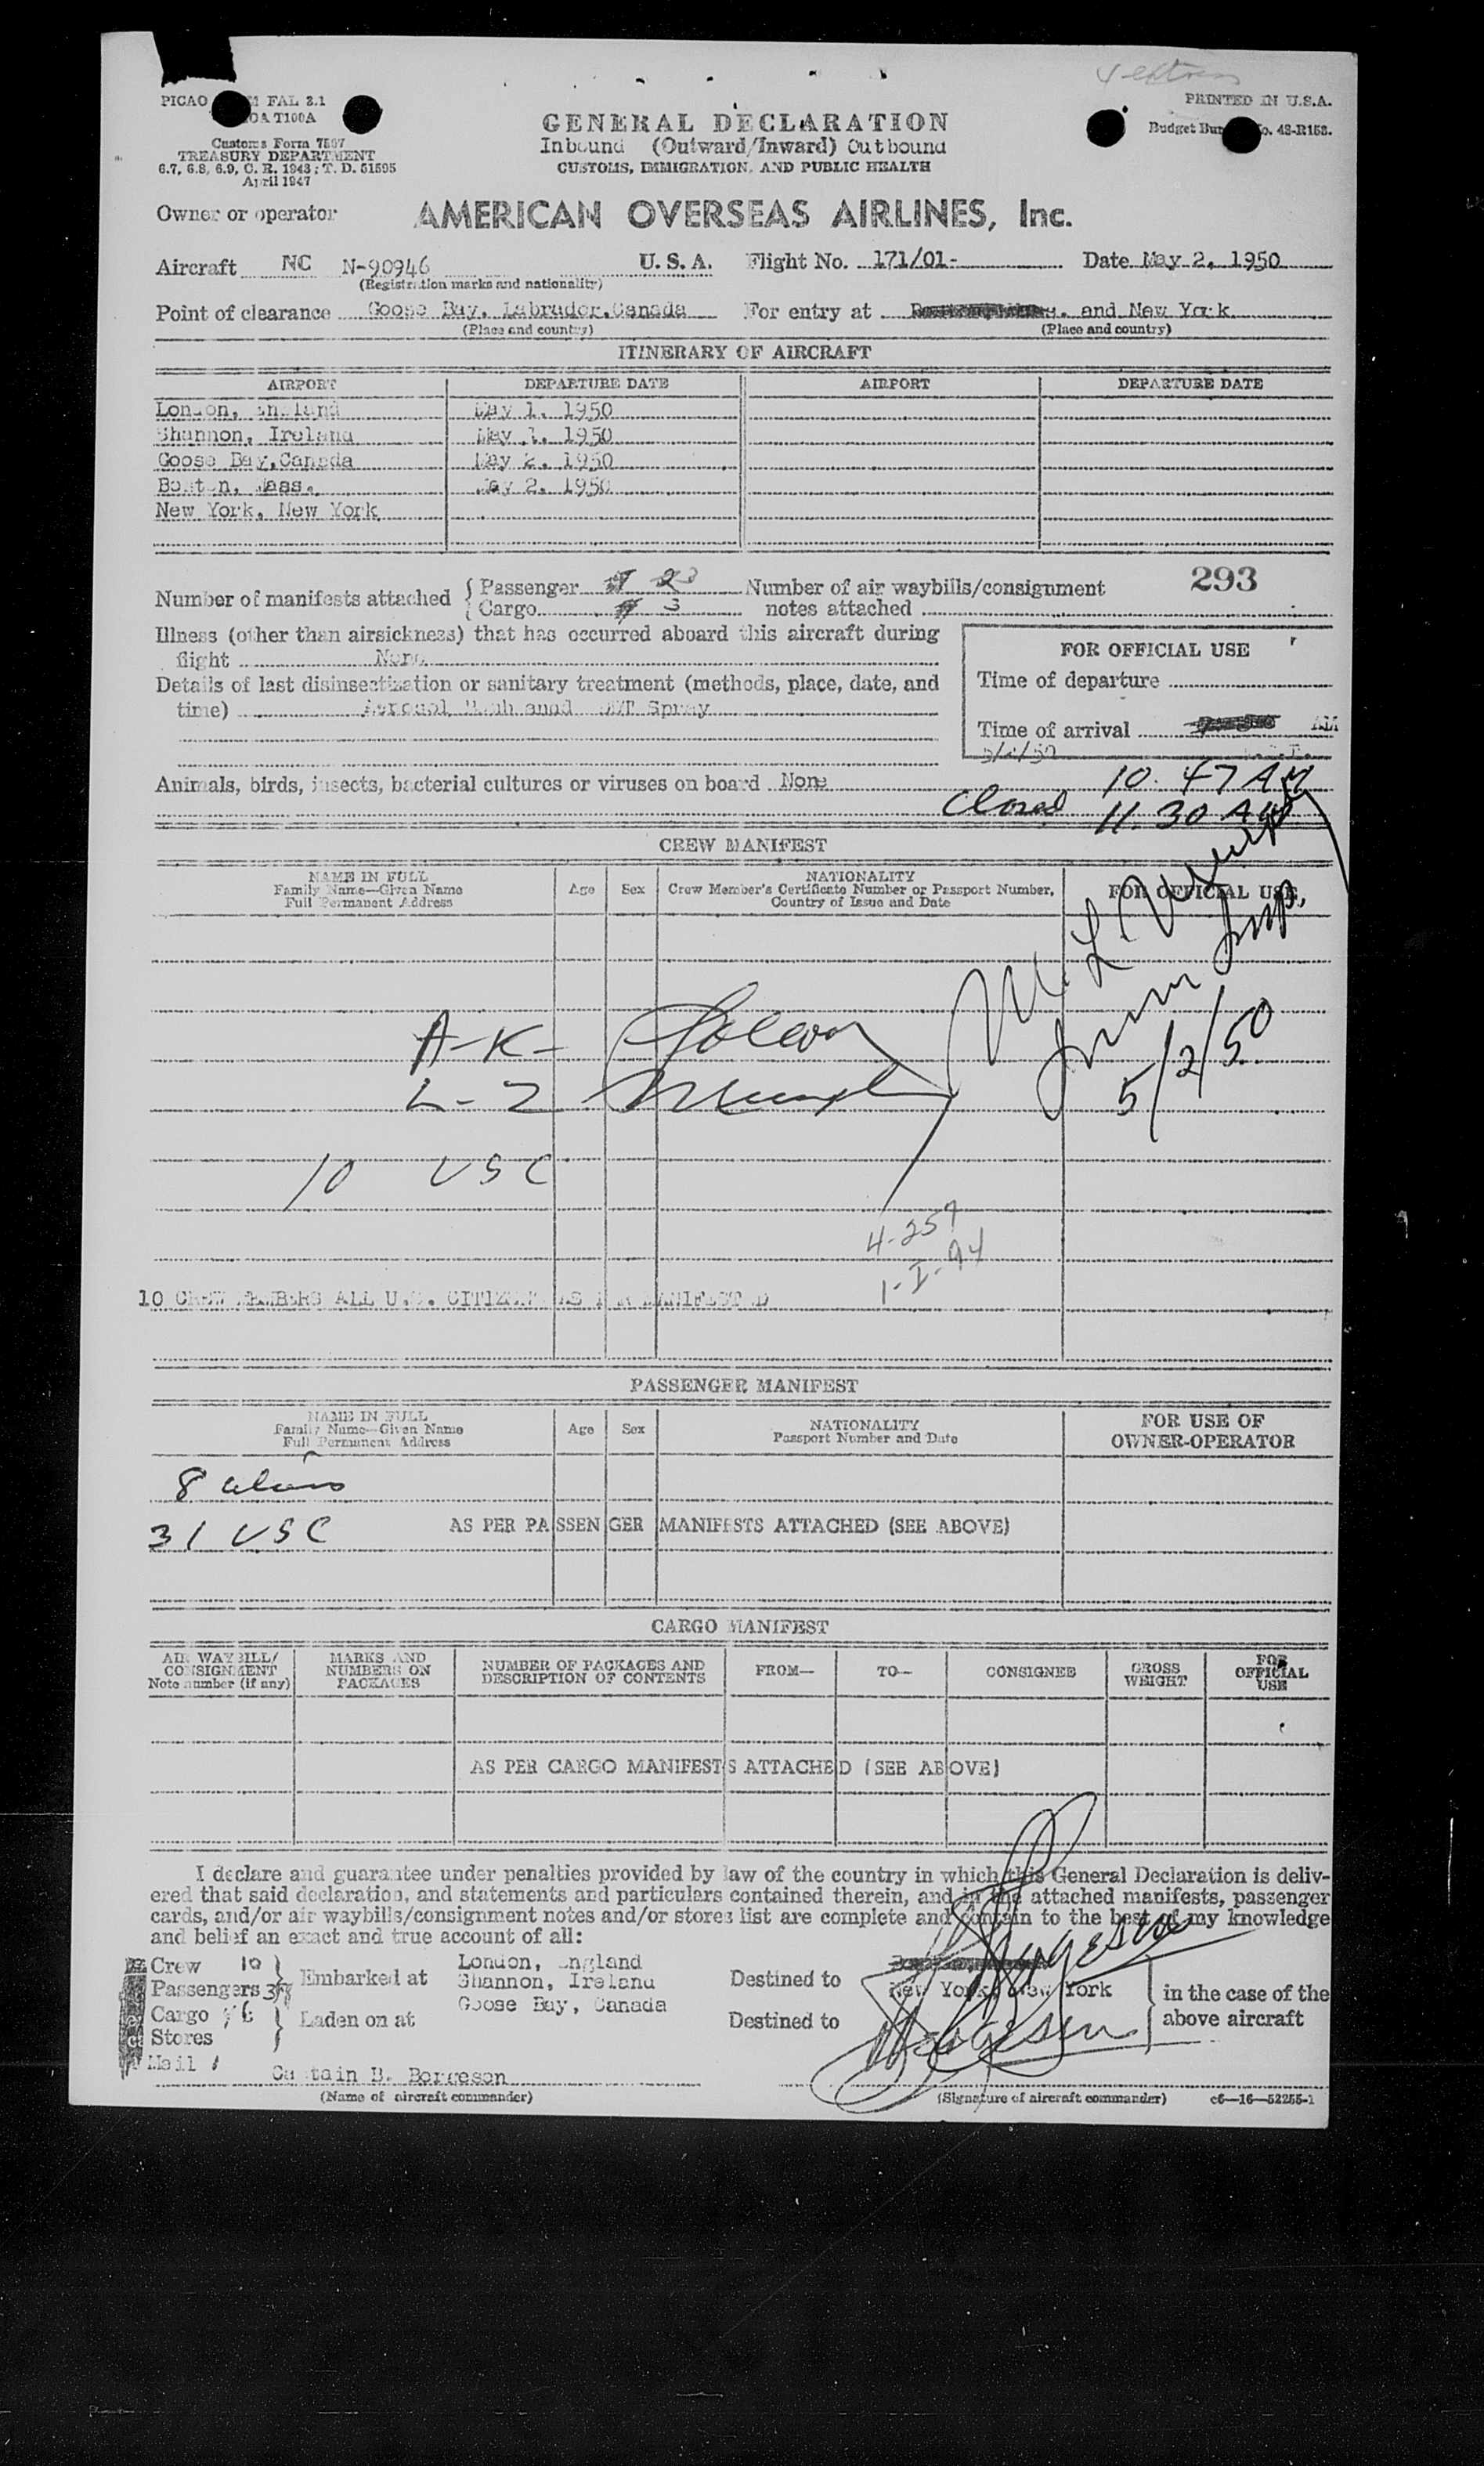 PICAO FAL 2.1
T100A
Customs Form 7507
TREASURY DEPARTMENT
6.7, 6.8, 6.9, C. R. 1943; T. D. 51595
April 1947
PRINTED IN U.S.A.
Budget No. 48-R158.
GENERAL DECLARATION
Inbound (Outward/Inward) Outbound
CUSTOMS, IMMIGRATION, AND PUBLIC HEALTH
Owner or operator AMERICAN OVERSEAS AIRLINES, Inc.
Aircraft NC N-90946 U. S. A. Flight No. 171/01- Date May 2, 1950
(Registration marks and nationality)
Point of clearance Goose Bay, Labrador, Canada For entry at and New York
(Place and country) (Place and country)
ITINERARY OF AIRCRAFT
AIRPORT DEPARTURE DATE AIRPORT DEPARTURE DATE
London, England May 1, 1950
Shannon, Ireland May 1, 1950
Goose Bay, Canada May 2, 1950
Boston, Mass. May 2, 1950
New York, New York
Number of manifests attached { Passenger Number of air waybills/consignment 293
{ Cargo 3 notes attached
Illness (other than airsickness) that has occurred aboard this aircraft during
flight None
Details of last disinsectization or sanitary treatment (methods, place, date, and
time) DDT Spray
FOR OFFICIAL USE
Time of departure
Time of arrival AM
5/2/50
Animals, birds, insects, bacterial cultures or viruses on board None
10.47 AM
Closed 11.30 AM
CREW MANIFEST
NAME IN FULL
Family Name—Given Name
Full Permanent Address
Age Sex
NATIONALITY
Crew Member's Certificate Number or Passport Number,
Country of Issue and Date
FOR OFFICIAL USE
Insp.
5/2/50
A-K-
L-Z
10 USC
4-257
1-I-94
10 CREW MEMBERS ALL U.S. CITIZENS AS PER MANIFESTED
PASSENGER MANIFEST
NAME IN FULL
Family Name—Given Name
Full Permanent Address
Age Sex
NATIONALITY
Passport Number and Date
FOR USE OF
OWNER-OPERATOR
8 aliens
31 USC AS PER PASSENGER MANIFESTS ATTACHED (SEE ABOVE)
CARGO MANIFEST
AIR WAYBILL/
CONSIGNMENT
Note number (if any)
MARKS AND
NUMBERS ON
PACKAGES
NUMBER OF PACKAGES AND
DESCRIPTION OF CONTENTS
FROM— TO— CONSIGNEE
GROSS
WEIGHT
FOR
OFFICIAL
USE
AS PER CARGO MANIFESTS ATTACHED (SEE ABOVE)
I declare and guarantee under penalties provided by law of the country in which this General Declaration is deliv-
ered that said declaration, and statements and particulars contained therein, and in the attached manifests, passenger
cards, and/or air waybills/consignment notes and/or stores list are complete and contain to the best of my knowledge
and belief an exact and true account of all:
Crew 10
Passengers
Cargo
Stores
Mail
Embarked at
Laden on at
London, England
Shannon, Ireland
Goose Bay, Canada
Destined to
New York, New York
Destined to
in the case of the
above aircraft
Captain B. Borgeson
(Name of aircraft commander) (Signature of aircraft commander) c6—16—52255-1